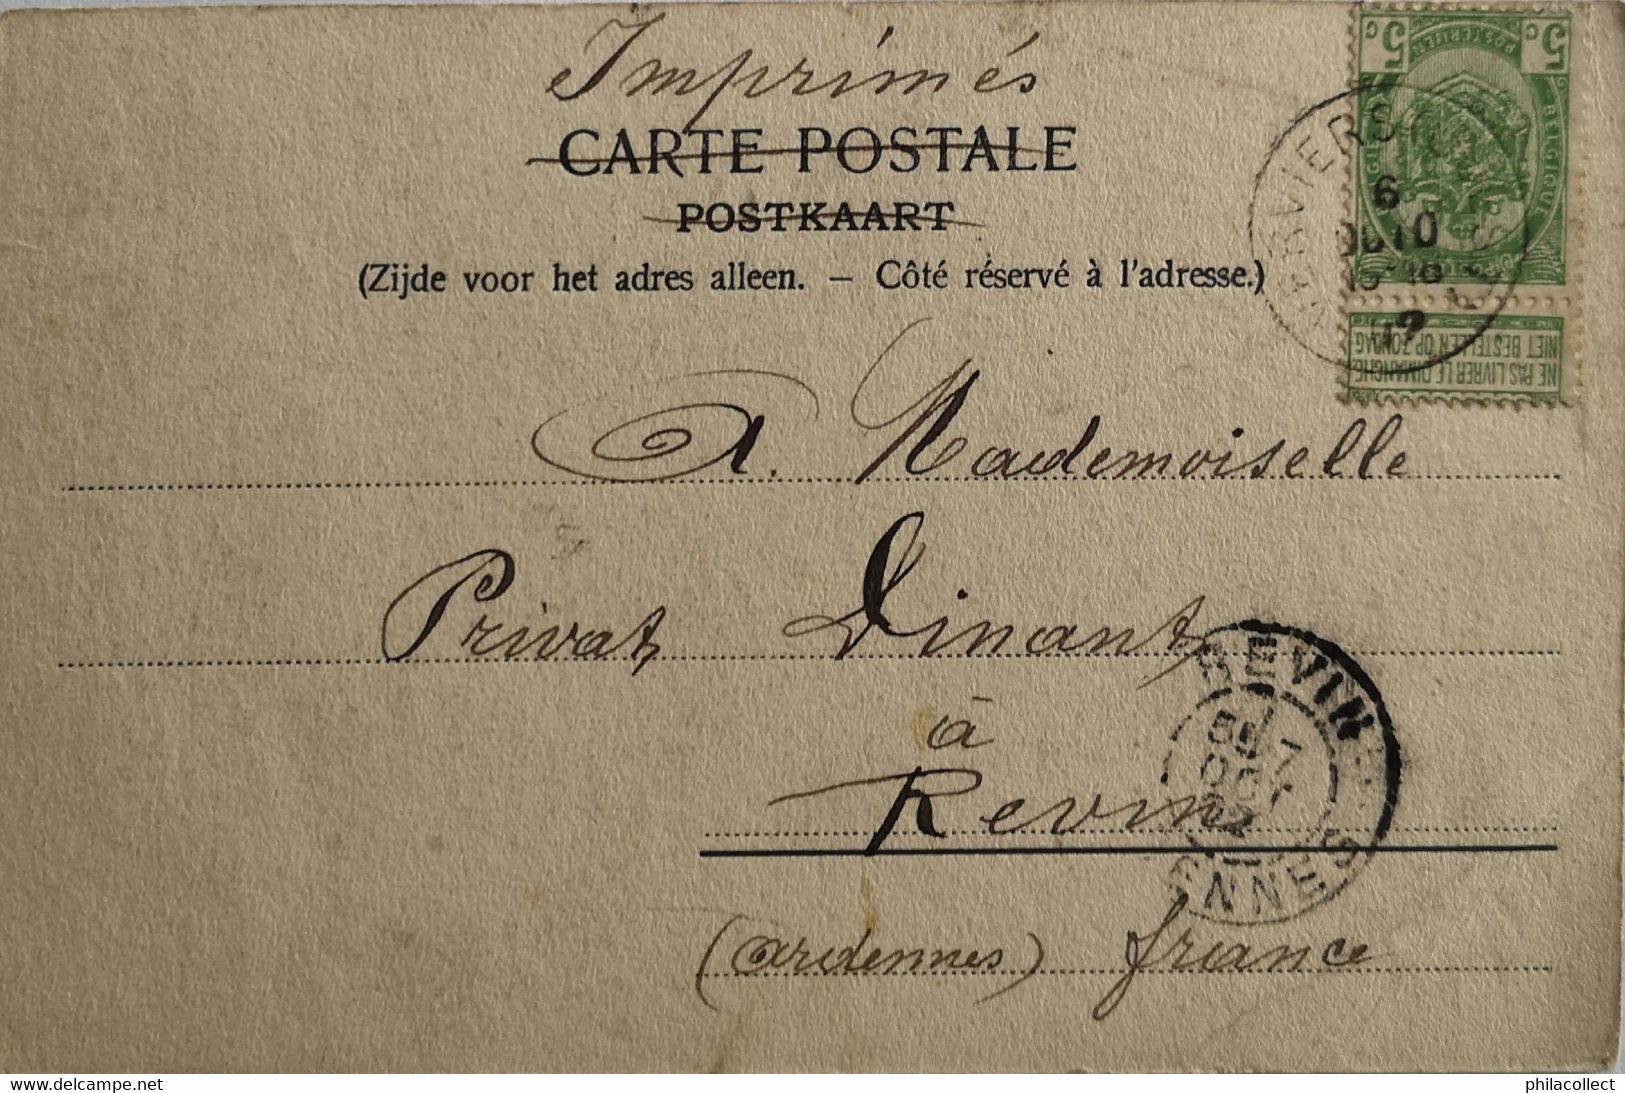 Imprimés
CARTE POSTALE
POSTKAART
(Zijde voor het adres alleen. – Côté réservé à l'adresse.)
5c 5c
POSTERIJEN
BELGIQUE
NE PAS LIVRER LE DIMANCHE
NIET BESTELLEN OP ZONDAG
VERVIERS
6
10
A. Mademoiselle
Privat Dinant
à
Revin
(ardennes) france
REVIN
7
OCT
02
ENNES
philacollect